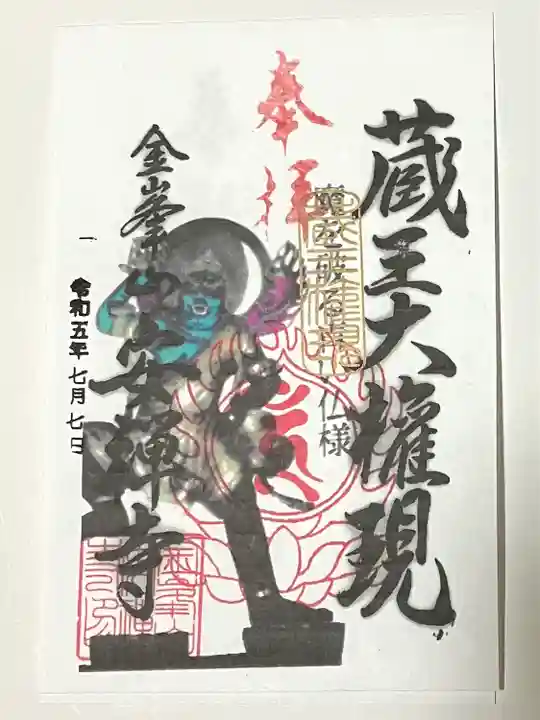 蔵王大権現
奉拝
仏様
金峯山安禅寺
令和五年七月七日